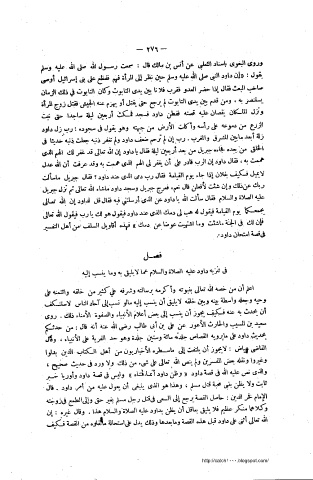 — ٢٧٦ —
وروى البغوى باسناد الثعلبى عن أنس بن مالك قال : سمعت رسول الله صلى الله عليه وسلم
يقول : «إن داود النبى صلى الله عليه وسلم حين نظر إلى المرأة فهم فقطع على بنى إسرائيل أوصى
صاحب البعث فقال إذا حضر العدو فقرب فلانا بين يدى التابوت وكان التابوت فى ذلك الزمان
يستنصر به . ومن قدم بين يدى التابوت لم يرجع حتى يقتل أو ينهزم عنه الجيش فقتل زوج المرأة
ونزل الملكان يقصان عليه قصته ففطن داود فسجد فمكث أربعين ليلة ساجدا حتى نبت
الزرع من دموعه على رأسه وأكلت الأرض من جبهته وهو يقول فى سجوده : رب زل داود
زلة أبعد مابين المشرق والمغرب ، رب إن لم ترحم ضعف داود ولم تغفر ذنبه جعلت ذنبه حديثا فى
الخلق من بعده فجاءه جبريل من بعد أربعين ليلة فقال ياداود إن الله تعالى قد غفر لك الهم الذى
هممت به ، فقال داود إن الرب قادر على أن يغفر لى الهم الذى هممت به وقد عرفت أن الله عدل
لايميل فكيف بفلان إذا جاء يوم القيامة فقال يارب دمى الذى عند داود ؟ فقال جبريل ماسألت
ربك عن ذلك وإن شئت لأفعلن قال نعم، فعرج جبريل وسجد داود ماشاء الله تعالى ثم نزل جبريل
عليه الصلاة والسلام فقال سألت الله ياداود عن الذى أرسلتنى فيه فقال قل لداود إن الله تعالى
يجمعكما يوم القيامة فيقول له هب لى دمك الذى عند داود فيقول هو لك يا رب فيقول الله تعالى
فإن لك فى الجنة ماشئت وما اشتهيت عوضا عن دمك » فهذه أقاويل السلف من أهل التفسير
فى قصة امتحان داود .
فصل
فى تنزيه داود عليه الصلاة والسلام عما لايليق به وما ينسب إليه
اعلم أن من خصه الله تعالى بنبوته وأكرمه برسالته وشرفه على كثير من خلقه وائتمنه على
وحيه وجعله واسطة بينه وبين خلقه لايليق أن ينسب إليه مالو نسب إلى آحاد الناس لاستنكف
أن يحدث به عنه فكيف يجوز أن ينسب إلى بعض أعلام الأنبياء والصفوة الأمناء ذلك . روى
سعيد بن المسيب والحارث الأعور عن على بن أبى طالب رضى الله عنه أنه قال : من حدثكم
بحديث داود على مايرويه القصاص جلدته مائة وستين جلدة وهو حد الفرية على الأنبياء ، وقال
القاضى عياض : لايجوز أن يلتفت إلى ماسطره الأخباريون من أهل الكتاب الذين بدلوا
وغيروا ونقله بعض المفسرين ولم ينص الله تعالى على شىء من ذلك ولا ورد فى حديث صحيح ؛
والذى نص عليه الله فى قصة داود « وظن داود أنما فتناه » وليس فى قصة داود وأوريا خبر
ثابت ولا يظن بنبى محبة قتل مسلم ، وهذا هو الذى ينبغى أن يعول عليه من أمر داود . قال
الإمام فخر الدين : حاصل القصة يرجع إلى السعى فى قتل رجل مسلم بغير حق وإلى الطمع فى زوجته
وكلاهما منكر عظيم فلا يليق بعاقل أن يظن بداود عليه الصلاة والسلام هذا . وقال غيره : إن
الله تعالى أثنى على داود قبل هذه القصة وبعدها وذلك يدل على استحالة مانقلوه من القصة فكيف